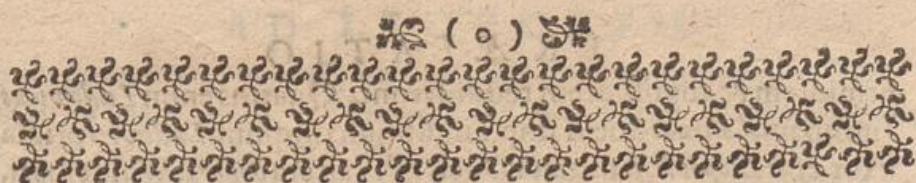 ( o )